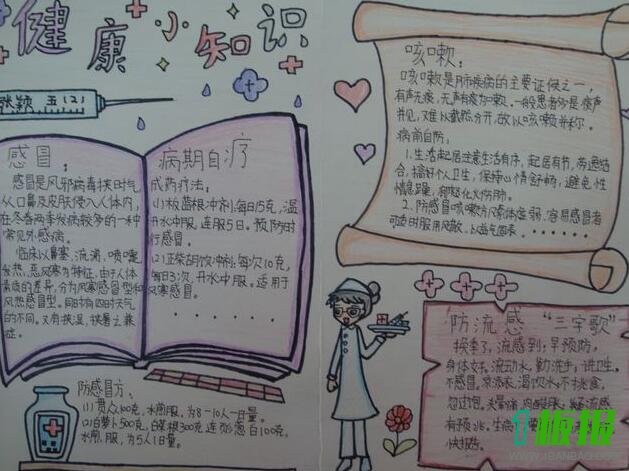 健康小知识
张颖 五(2)
感冒:
感冒是风邪病毒挟时气
从口鼻及皮肤侵入人体内,
在冬春两季发病较多的一种
常见外感病。
临床以鼻塞、流涕、喷嚏
发热、恶风寒为特征。由于人体
素质的差异,分为风寒感冒型和
风热感冒型。同时有四时天气
的不同,又有挟湿、挟暑之兼
症。
病期自疗
成药疗法:
(1)板蓝根冲剂:每日15克,温
开水中服,连服5日。预防时
行感冒。
(2)正柴胡饮冲剂:每次10克,
每日3次,开水中服。适用于
风寒感冒。
防感冒方:
(1)贯众100克,水煎服,为8-10人一日量。
(2)白萝卜500克,白菜根300克 连须葱白100克,
水煎服,为5人1日量。
咳嗽:
咳嗽是肺疾病的主要证候之一,
有声无痰,无声有痰为嗽。一般患者多是痰声
并见,难以截然分开,故以咳嗽并称。
病前自防:
1.生活起居注意生活有序,起居有节,劳逸结
合,搞好个人卫生,保持心情舒畅,避免性
情急躁,郁怒化火伤肺。
2.防感冒咳嗽方 体虚弱、容易感冒者
可适时服用 散,以益气固表
防流感“三字歌”
换季了,流感到;早预防,
身体好。流动水,勤洗手,讲卫生,
不感冒。凉添衣,渴饮水;不挑食,
勿过饱。
有预兆。生病
快报告。
板报
WWW.1BANBAO.COM